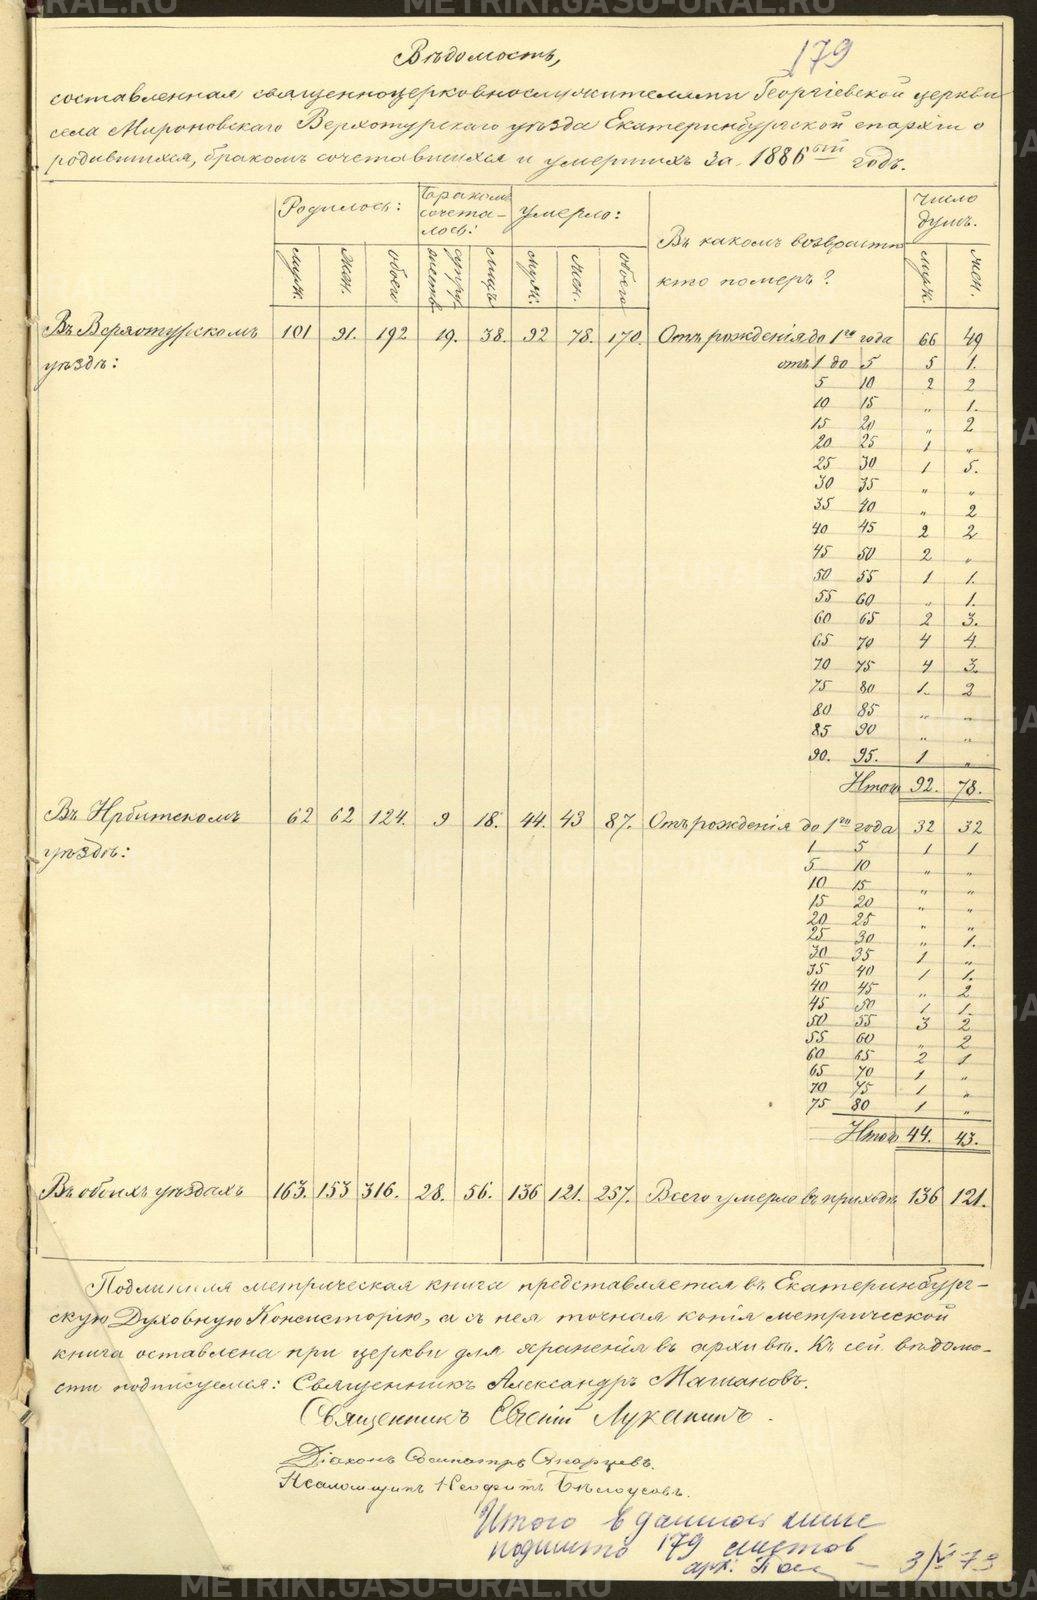 179
Вѣдомость,
составленная священноцерковнослужителями Георгіевской церкви
села Мироновскаго Верхотурскаго уѣзда Екатеринбургской епархіи о
родившихся, бракомъ сочетавшихся и умершихъ за 1886ой годъ.
Родилось: Бракомъ сочета-лось: Умерло: Въ какомъ возврастѣ кто померъ? Число душъ.
муж. жен. обоего супружеств. лицъ муж. жен. обоего муж. жен.
Въ Верхотурскомъ 101 91. 192 19. 38. 92 78. 170. Отъ рожденія до 1го года 66 49
уѣздѣ: отъ 1 до 5 5 1.
5 10 2 2
10 15 „ 1.
15 20 „ 2
20 25 1 „
25 30 1 5.
30 35 „ „
35 40 „ 2
40 45 2 2
45 50 2 „
50 55 1 1.
55 60 „ 1.
60 65 2 3.
65 70 4 4.
70 75 4 3.
75 80 1. 2
80 85 „ „
85 90 „ „
90. 95. 1 „
Итого 92. 78.
Въ Ирбитскомъ 62 62 124. 9 18. 44. 43 87. Отъ рожденія до 1го года 32 32
уѣздѣ: 1 5 1 1
5 10 „ „
10 15 „ „
15 20 „ „
20 25 „ „
25 30 „ 1.
30 35 1 „
35 40 1 1.
40 45 „ 2
45 50 1 1.
50 55 3 2
55 60 „ 2
60 65 2 1
65 70 1 „
70 75 1 „
75 80 1 „
Итого 44. 43.
Въ обоихъ уѣздахъ 163. 153 316. 28. 56. 136 121. 257. Всего умерло въ приходѣ 136 121.
Подлинная метрическая книга представляется въ Екатеринбург-
скую Духовную Консисторію, а съ нея точная копія метрической
книга оставлена при церкви для храненія въ архивѣ. Къ сей вѣдомо-
сти подписуемся: Священникъ Александръ
Священникъ Евгеній Луканинъ.
Діаконъ
Псаломщикъ Неофитъ Бѣлоусовъ.
Итого в данной книге
подшито 179 листов
арх. 3/V 73
METRIKI.GASU-URAL.RU